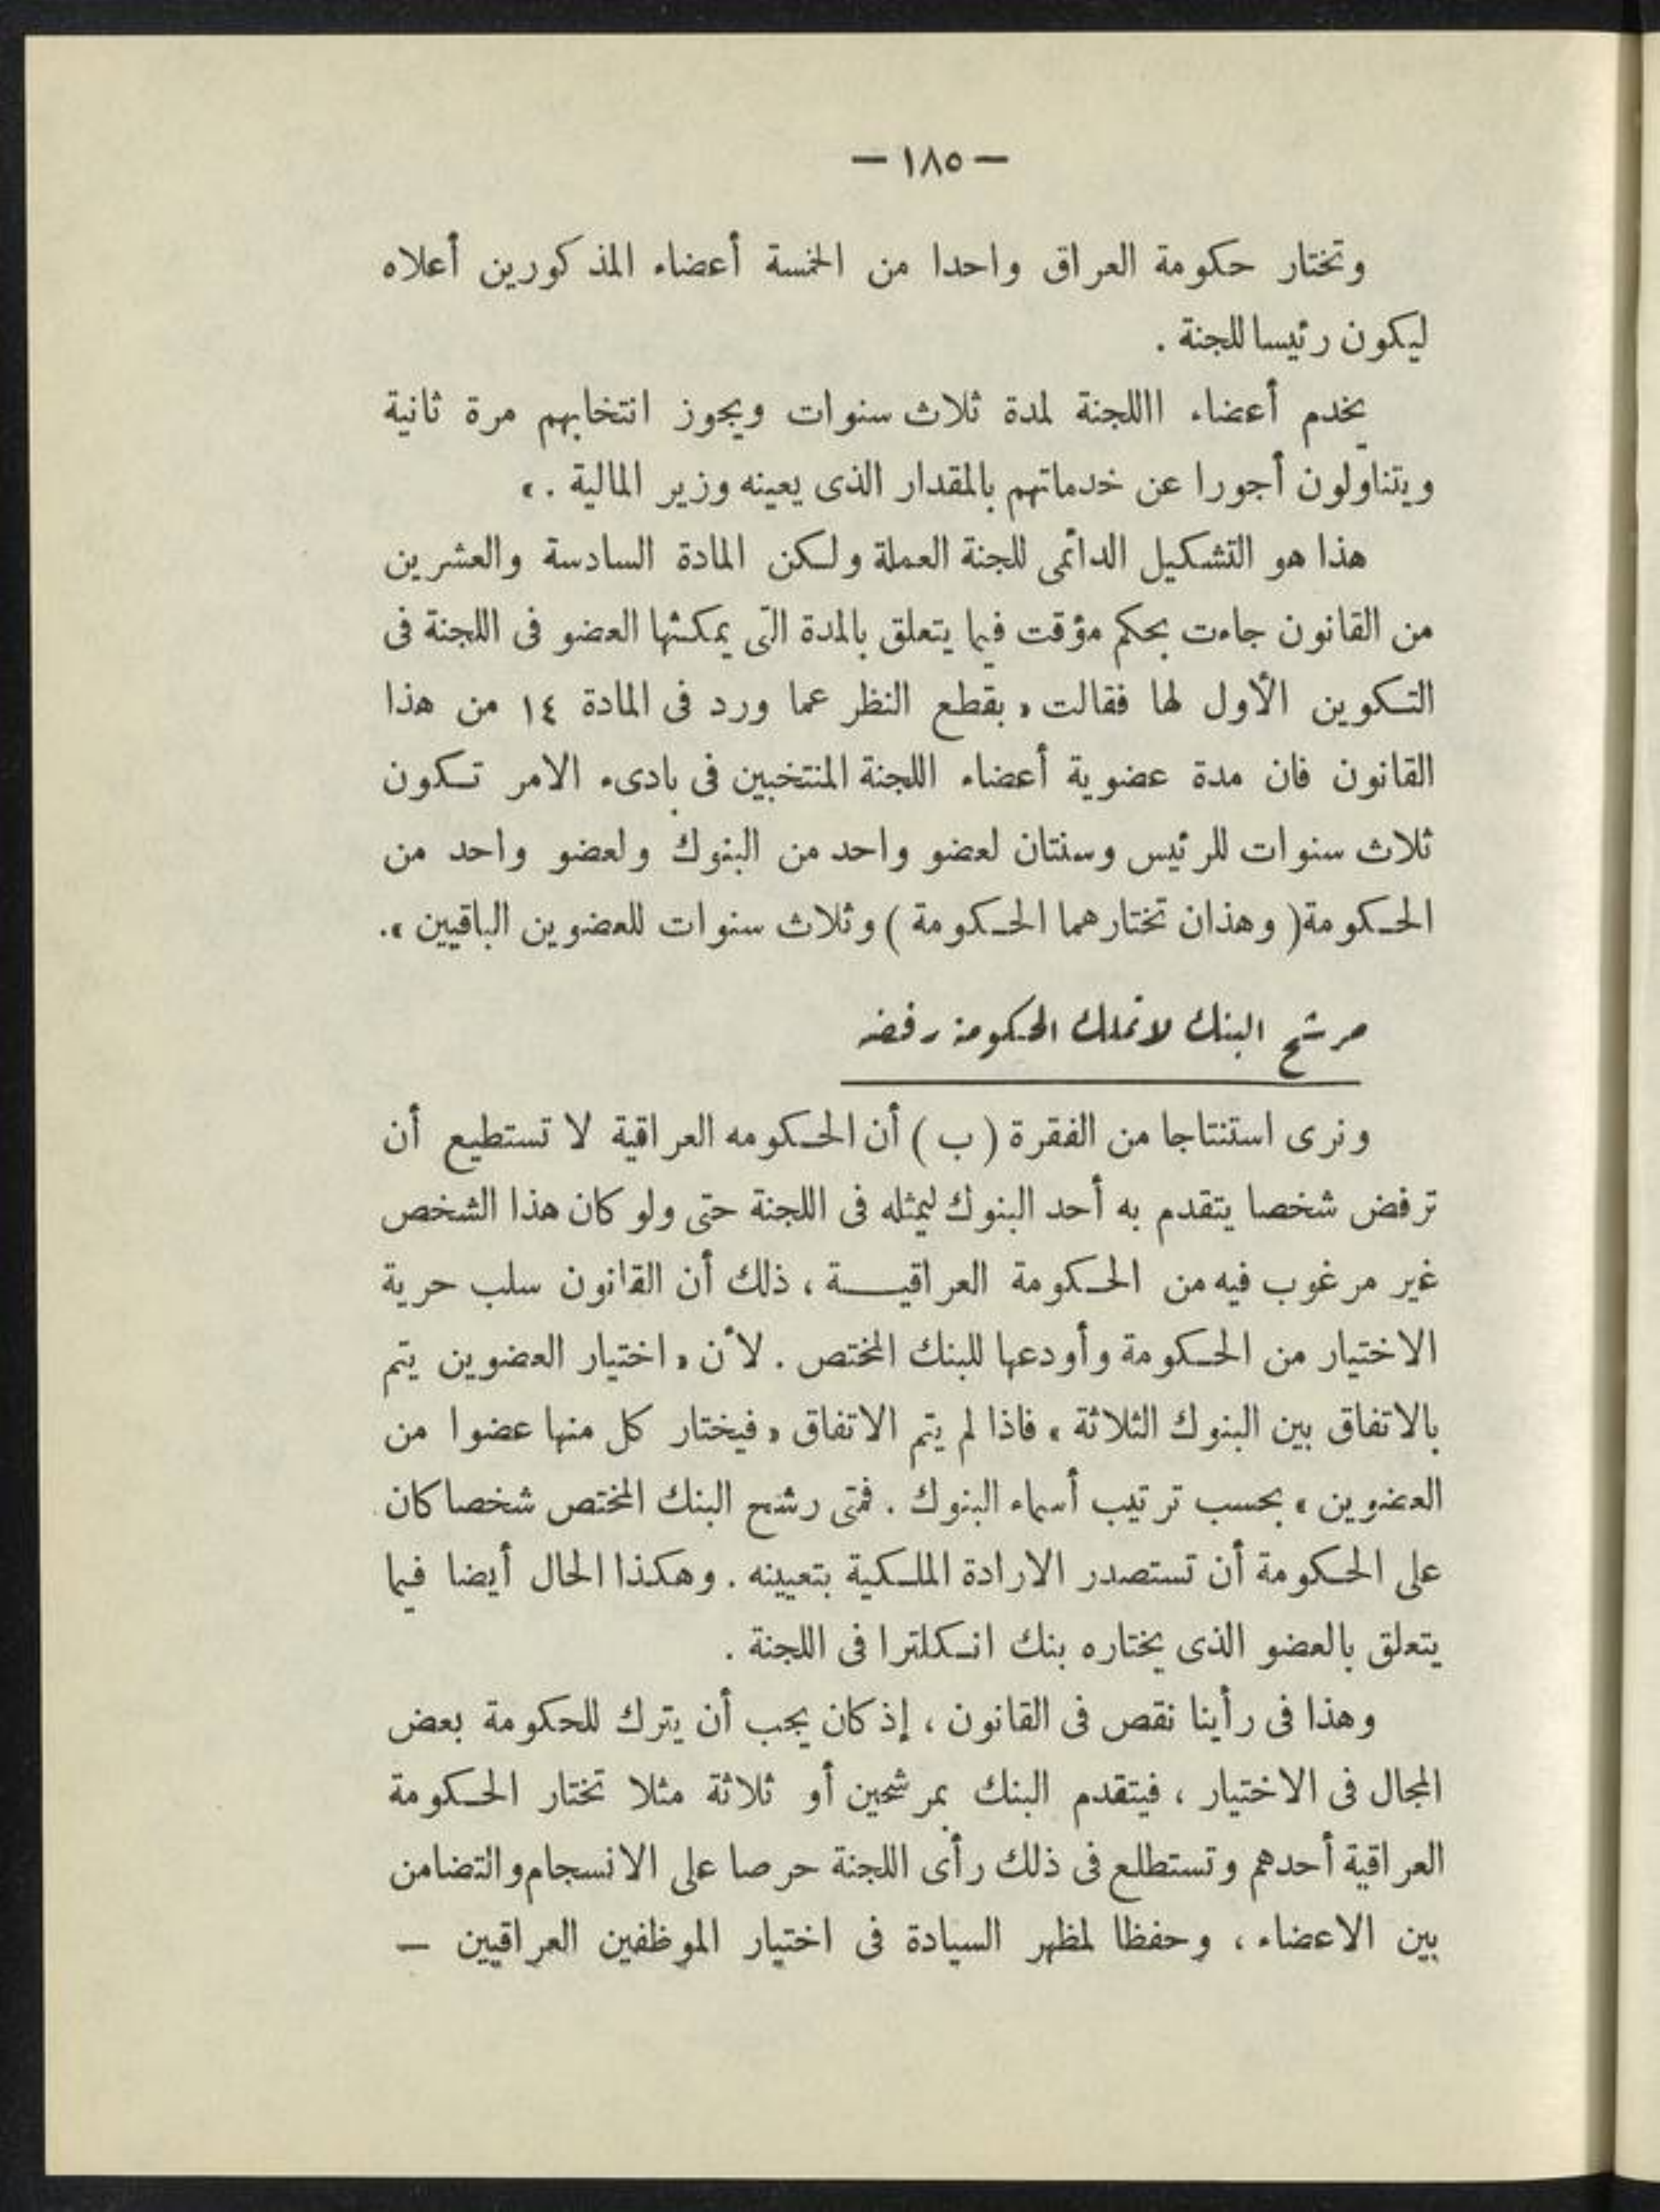 — ١٨٥ —
وتختار حكومة العراق واحدا من الخمسة أعضاء المذكورين أعلاه
ليكون رئيسا للجنة .
يخدم أعضاء االلجنة لمدة ثلاث سنوات ويجوز انتخابهم مرة ثانية
ويتناولون أجورا عن خدماتهم بالمقدار الذى يعينه وزير المالية . »
هذا هو التشكيل الدائمى للجنة العملة ولكن المادة السادسة والعشرين
من القانون جاءت بحكم مؤقت فيما يتعلق بالمدة التى يمكثها العضو فى اللجنة فى
التكوين الأول لها فقالت « بقطع النظر عما ورد فى المادة ١٤ من هذا
القانون فان مدة عضوية أعضاء اللجنة المنتخبين فى بادىء الامر تكون
ثلاث سنوات للرئيس وسنتان لعضو واحد من البنوك ولعضو واحد من
الحكومة ( وهذان تختارهما الحكومة ) وثلاث سنوات للعضوين الباقيين » .
مرشح البنك لا تملك الحكومة رفضه
ونرى استنتاجا من الفقرة ( ب ) أن الحكومه العراقية لا تستطيع أن
ترفض شخصا يتقدم به أحد البنوك ليمثله فى اللجنة حتى ولو كان هذا الشخص
غير مرغوب فيه من الحكومة العراقيـة ، ذلك أن القانون سلب حرية
الاختيار من الحكومة وأودعها للبنك المختص . لأن « اختيار العضوين يتم
بالاتفاق بين البنوك الثلاثة » فاذا لم يتم الاتفاق « فيختار كل منها عضوا من
العضوين » بحسب ترتيب أسماء البنوك . فمتى رشح البنك المختص شخصا كان
على الحكومة أن تستصدر الارادة الملكية بتعيينه . وهكذا الحال أيضا فيما
يتعلق بالعضو الذى يختاره بنك انكلترا فى اللجنة .
وهذا فى رأينا نقص فى القانون ، إذ كان يجب أن يترك للحكومة بعض
المجال فى الاختيار ، فيتقدم البنك بمرشحين أو ثلاثة مثلا تختار الحكومة
العراقية أحدهم وتستطلع فى ذلك رأى اللجنة حرصا على الانسجام والتضامن
بين الاعضاء ، وحفظا لمظهر السيادة فى اختيار الموظفين العراقيين —